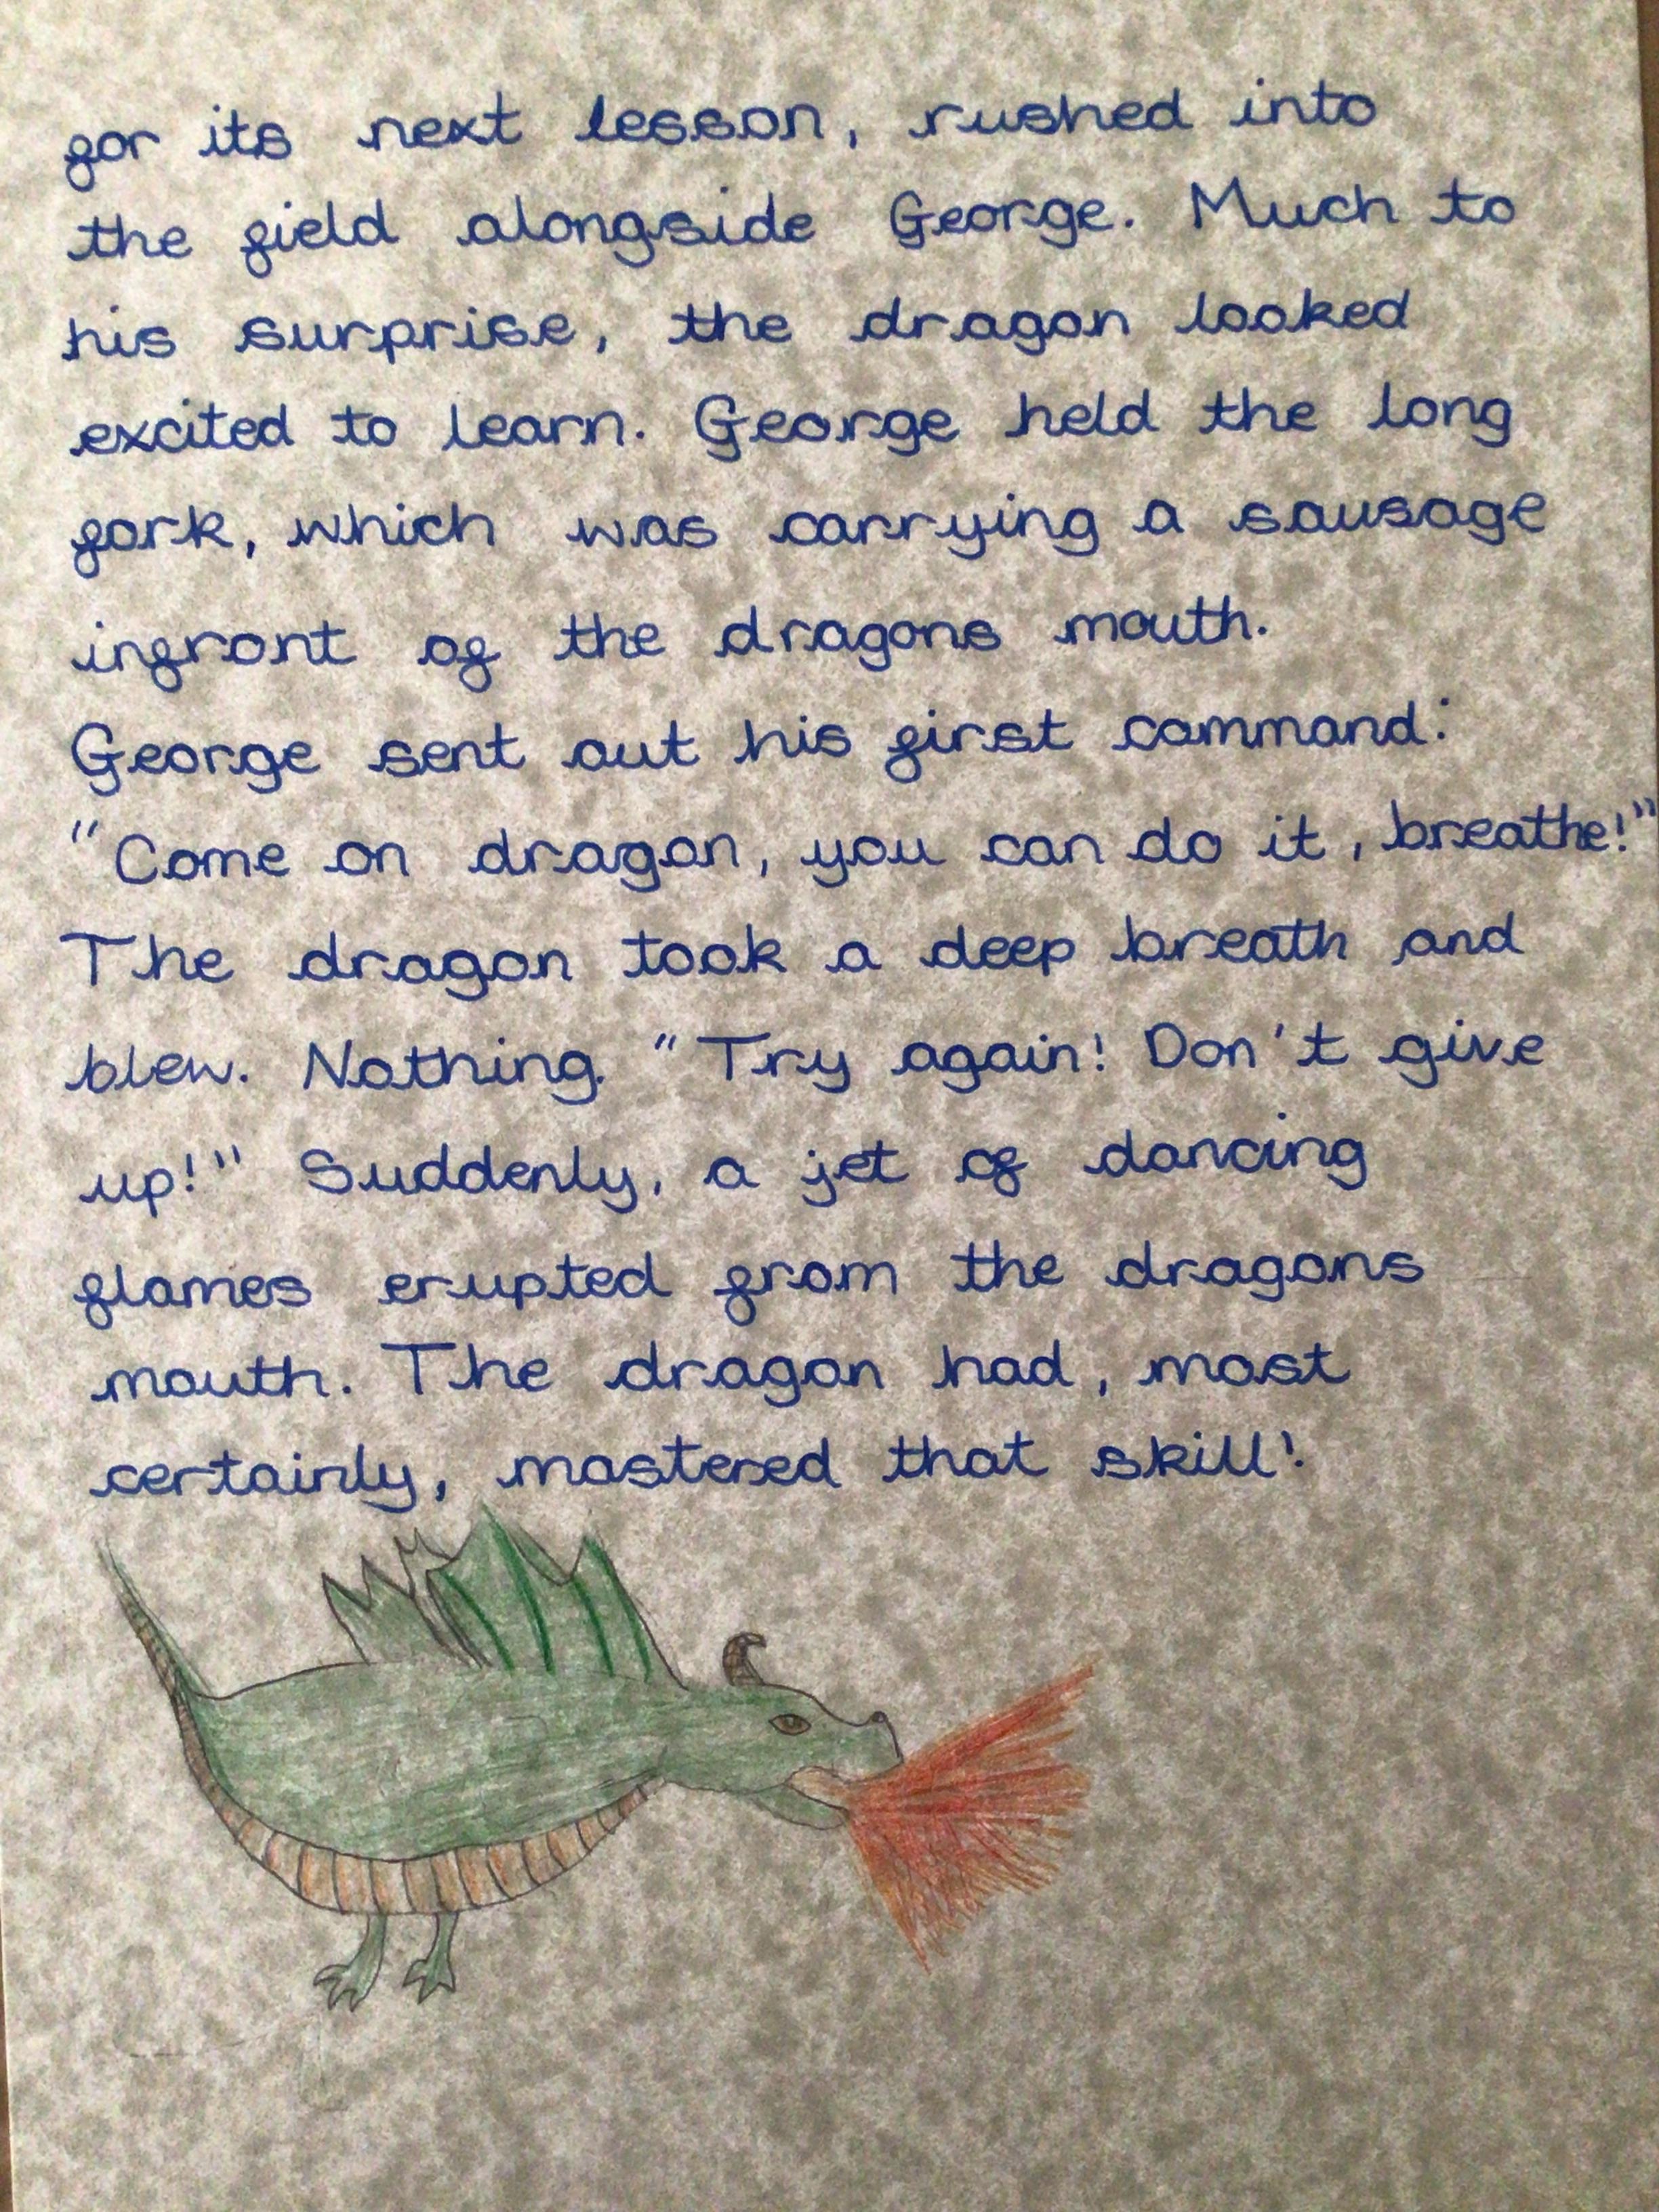 for its next lesson, rushed into
the field alongside George. Much to
his surprise, the dragon looked
excited to learn. George held the long
fork, which was carrying a sausage
infront of the dragons mouth.
George sent out his first command:
"Come on dragon, you can do it, breathe!"
The dragon took a deep breath and
blew. Nothing. "Try again! Don't give
up!" Suddenly, a jet of dancing
flames erupted from the dragons
mouth. The dragon had, most
certainly, mastered that skill!